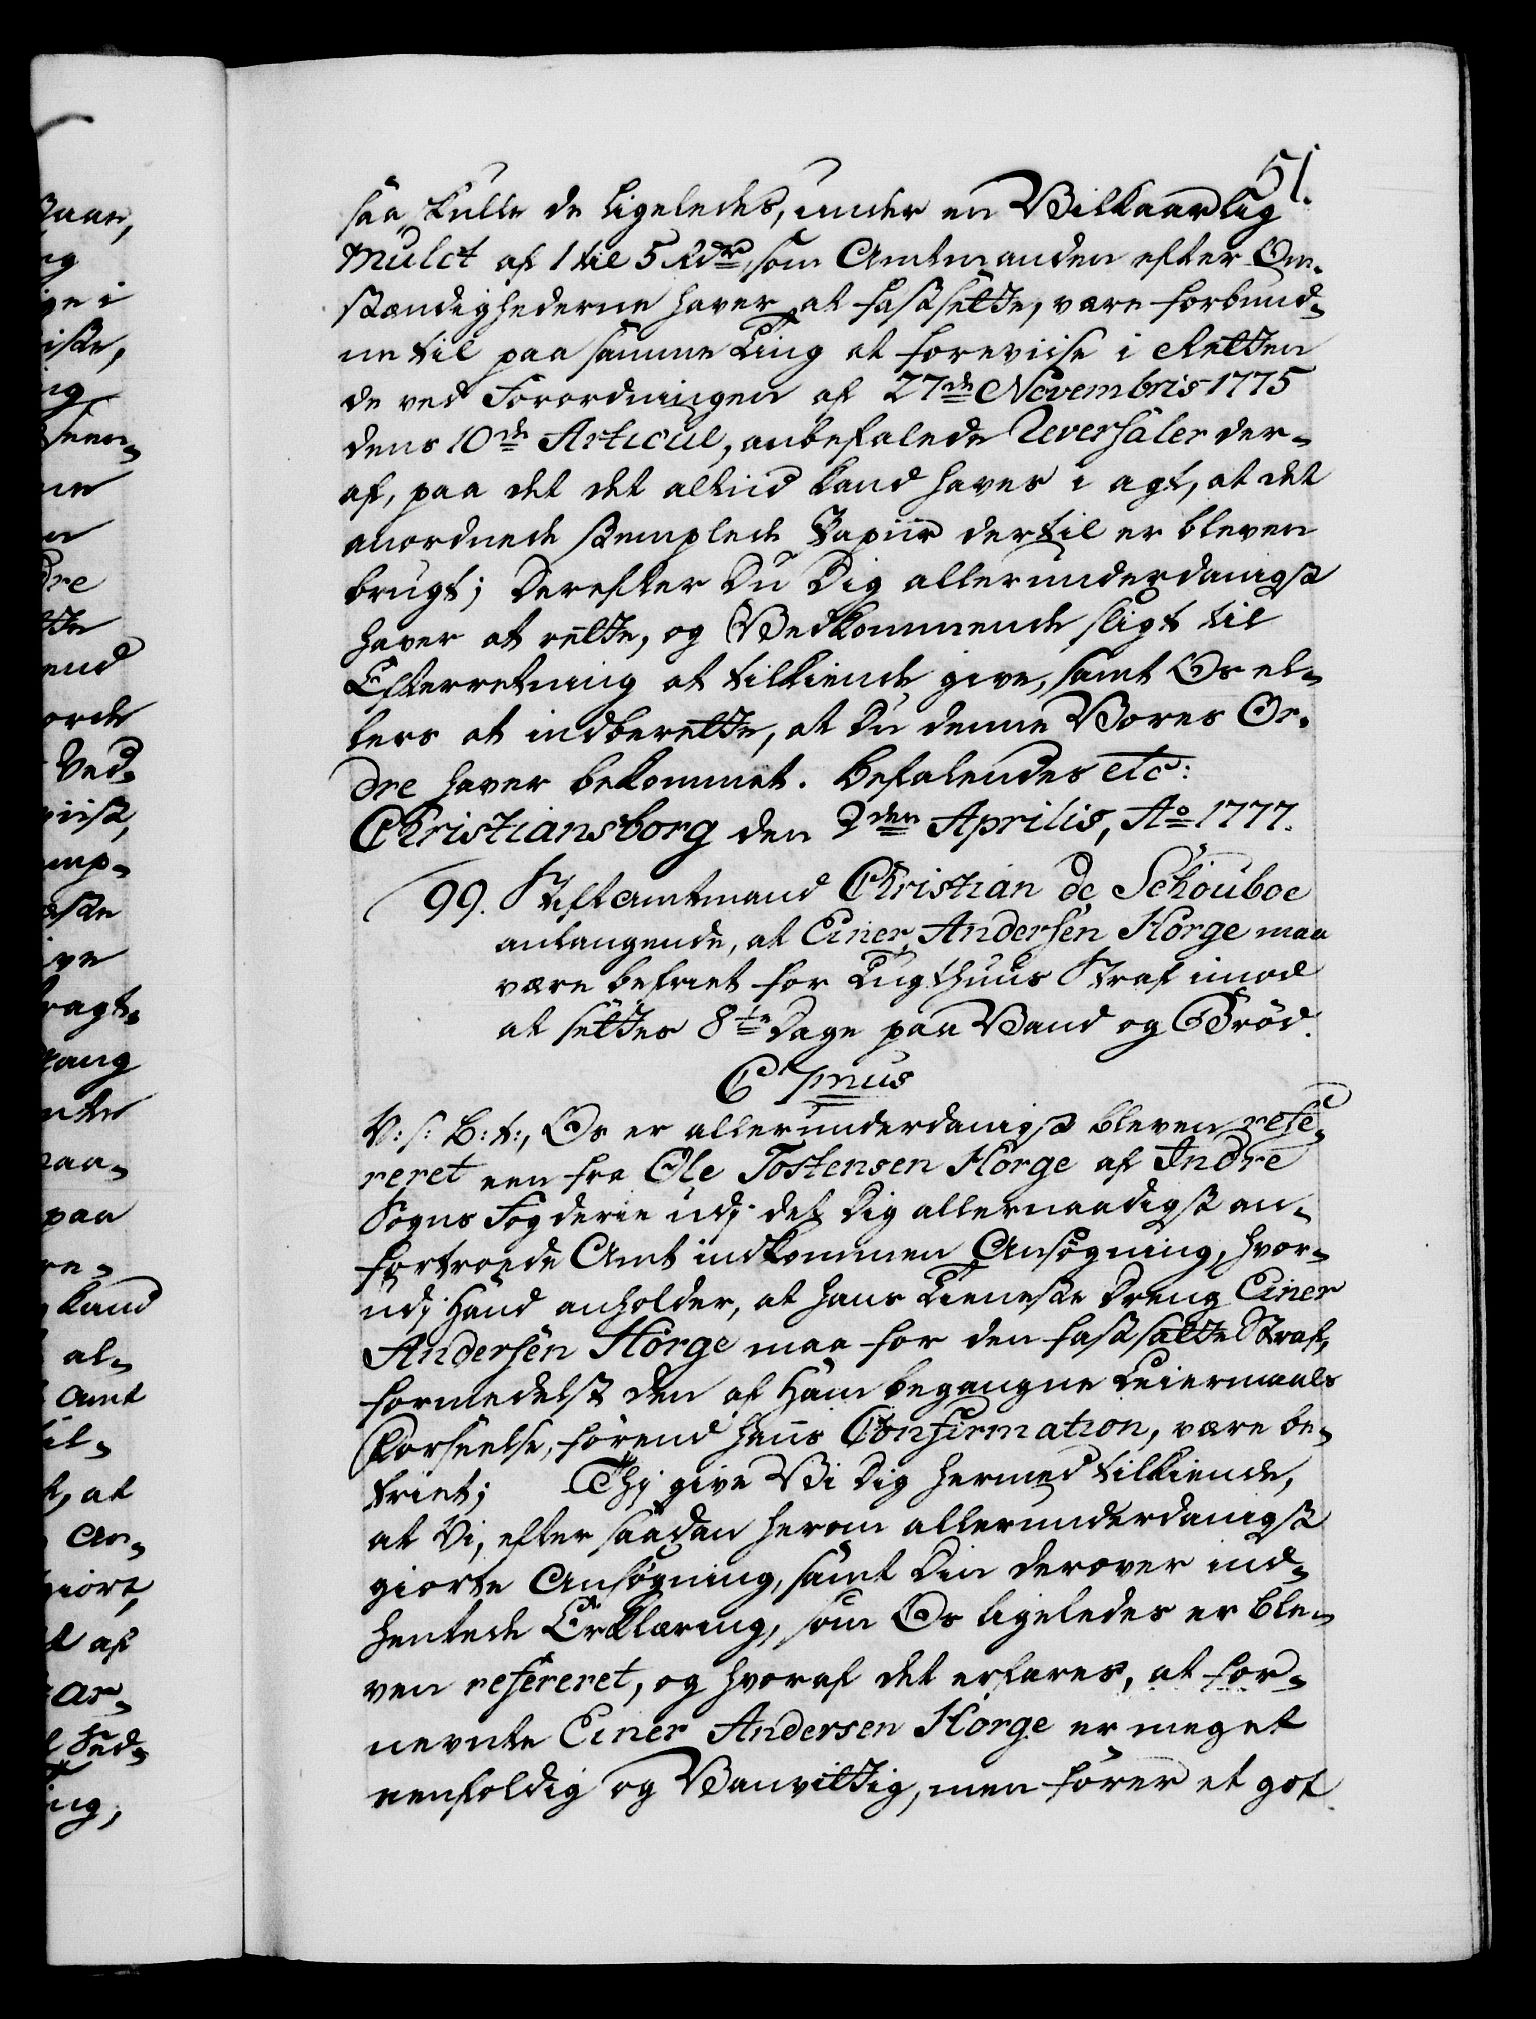 51.
saa skulle de ligeledes, under en Vilkaarlig
Mulct af 1 til 5 Rdr, som Amtmanden efter Om-
stændighederne haver at fastsette, være forbund-
ne til paa samme Ting at foreviise i Retten
de ved Forordningen af 27de Novembris 1775
dens 10de Articul, anbefalede Reversaler der-
af, paa det det altiid kand haves i agt, at det
anordnede stemplede Papiir dertil er bleven
brugt; Derefter Du Dig allerunderdanigst
haver at rette, og Vedkommende sligt til
Efterretning at tilkiende give, samt Os el-
lers at indberette, at Du denne Vores Or-
dre haver bekommet. Befalendes etc:
Christiansborg den 2den Aprilis, Ao 1777.
99. Stiftamtmand Christian de Schouboe
anlangende, at Einer Andersen Horge maa
være befriet for Tugthuus Straf imod
at settes 8te Dage paa Vand og Brød.
C 7mus
V: s: B: t:, Os er allerunderdanigst bleven refe-
reret een fra Ole Tostensen Horge af Indre
Sogns Fogderie udj det Dig allernaadigst an-
fortroede Amt indkommen Ansøgning, hvor-
udj Hand anholder, at hans Tieneste Dreng Einer
Andersen Horge maa for den fastsatte Straf,
formedelst den af Ham begangne Leiermaals
Forseelse, førend hans Confirmation, være be-
friet; Thj give Vi Dig hermed tilkiende,
at Vi, efter saadan herom allerunderdanigst
giorte Ansøgning, samt Din derover ind-
hentede Erklæring, som Os ligeledes er ble-
ven refereret, og hvoraf det erfares, at for-
nevnte Einer Andersen Horge er meget
eenfoldig og Vanvittig, men fører et got